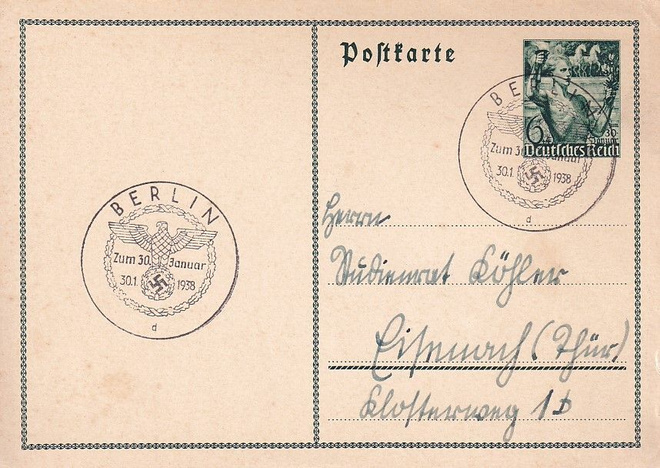 Poſtkarte
6
30
Januar
Deutſches Reich
BERLIN
Zum 30. Januar
30.1. 1938
d
BERLIN
Zum 30. Januar
30.1. 1938
d
Herrn
Studienrat Köhler
Eisenach (Thür)
Klosterweg 1b